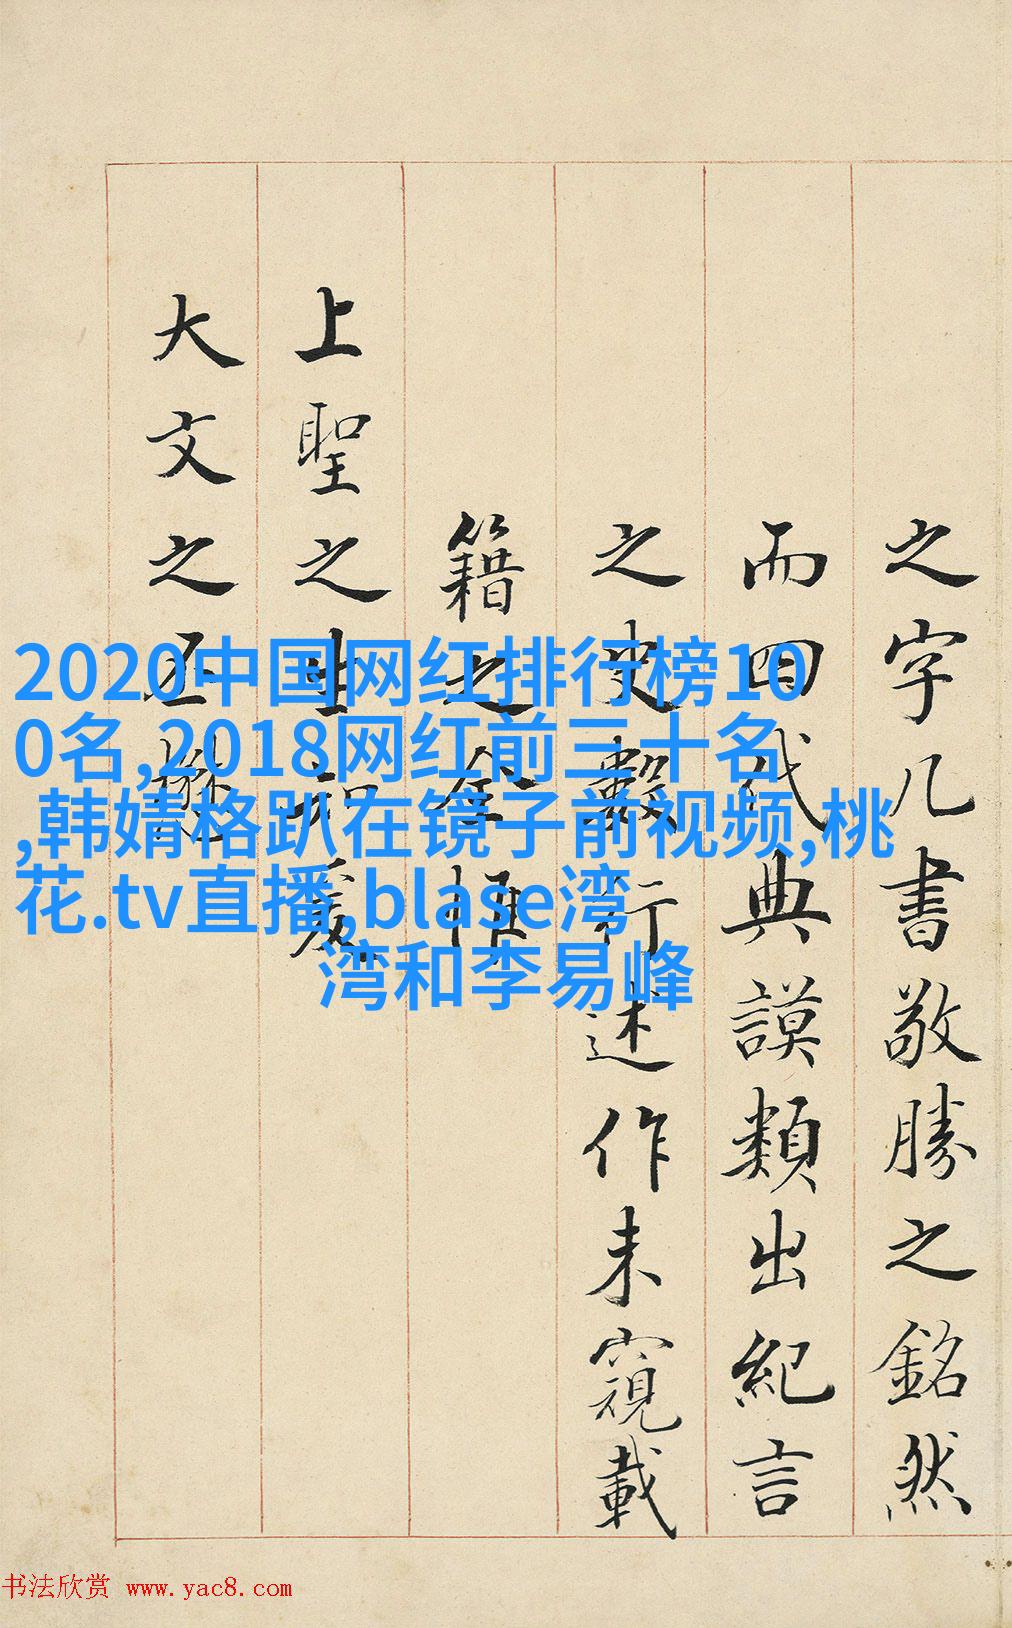 之字几書敬勝之銘然
而四代典謨類出紀言
之史數行述作未窺載
籍之全惟
上聖之生知爰
大文之丕
2020中国网红排行榜10
0名,2018网红前三十名
,韩婧格趴在镜子前视频,桃
花.tv直播,blase湾
湾和李易峰
书法欣赏 www.yac8.com